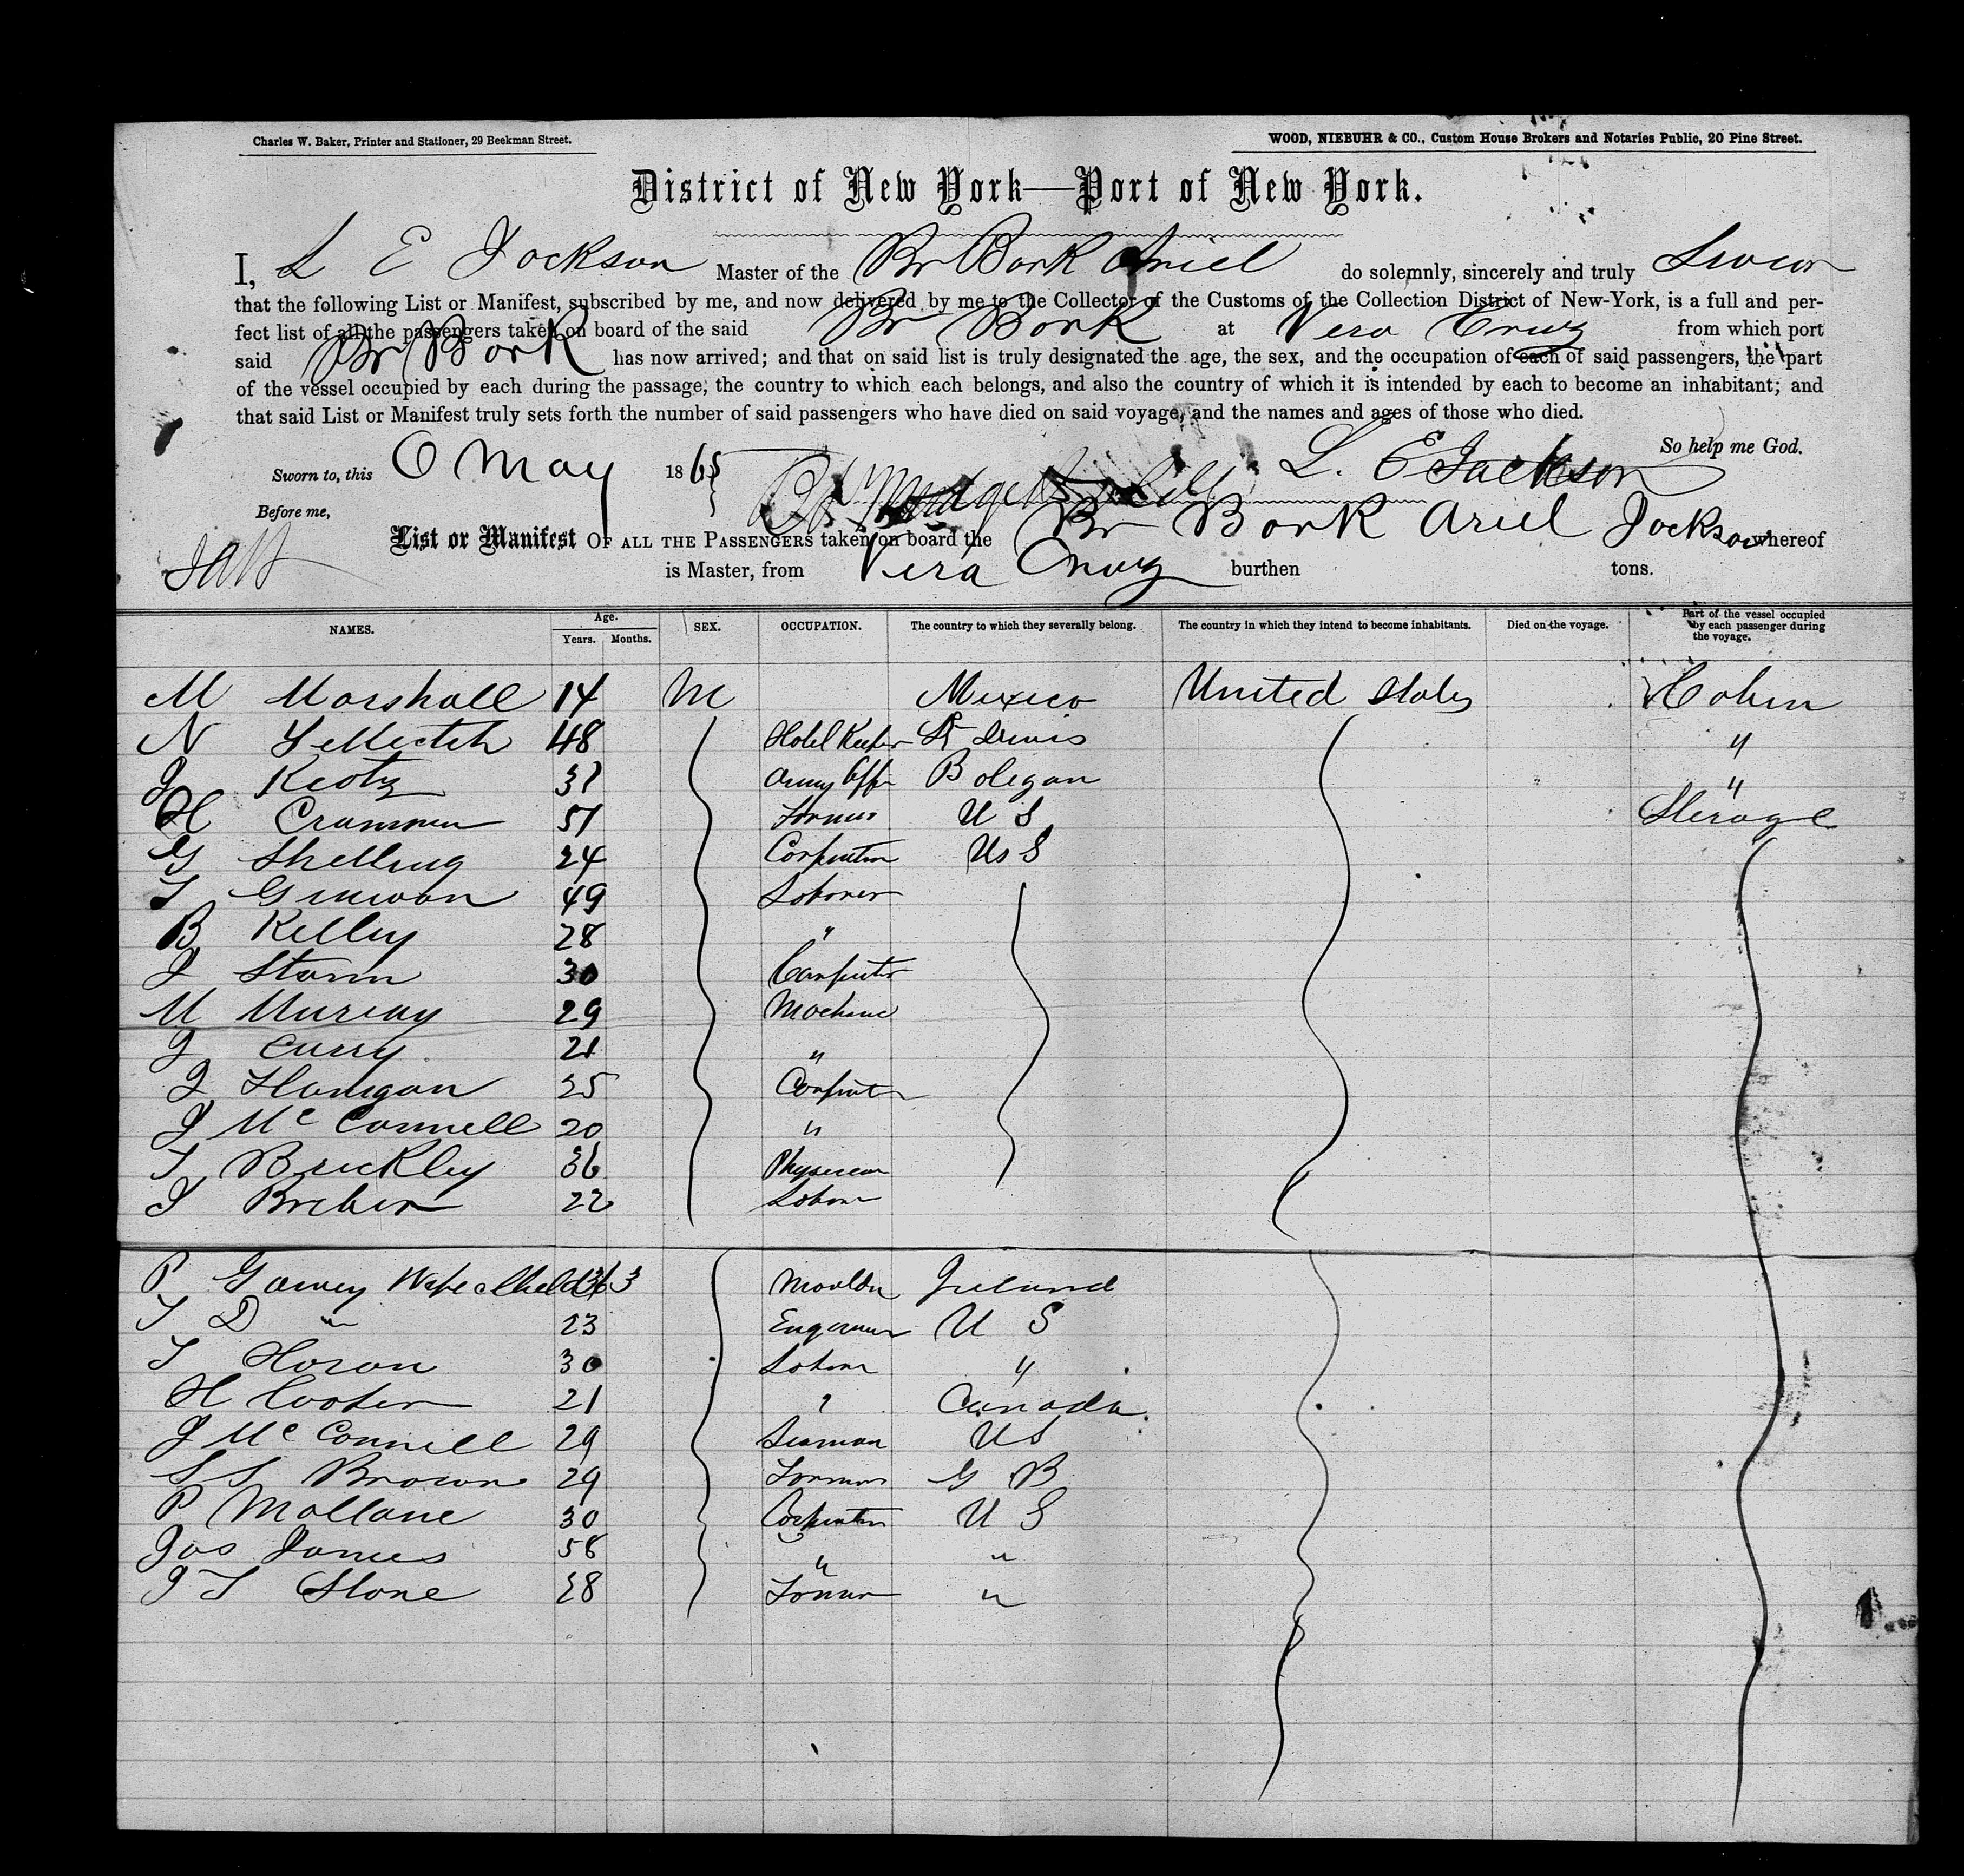 Charles W. Baker, Printer and Stationer, 29 Beekman Street.
WOOD, NIEBUHR & CO., Custom House Brokers and Notaries Public, 20 Pine Street.
District of New York—Port of New York.
I, L E Jackson Master of the Br Bark Ariel do solemnly, sincerely and truly Swear
that the following List or Manifest, subscribed by me, and now delivered by me to the Collector of the Customs of the Collection District of New-York, is a full and per-
fect list of all the passengers taken on board of the said Br Bark at Vera Cruz from which port
said Br Bark has now arrived; and that on said list is truly designated the age, the sex, and the occupation of each of said passengers, the part
of the vessel occupied by each during the passage, the country to which each belongs, and also the country of which it is intended by each to become an inhabitant; and
that said List or Manifest truly sets forth the number of said passengers who have died on said voyage, and the names and ages of those who died.
So help me God.
Sworn to, this May 1865 L. E Jackson
Before me,
List or Manifest OF ALL THE PASSENGERS taken on board the Br Bark Ariel Jackson whereof
is Master, from Vera Cruz burthen tons.
NAMES. Age. Years. Months. SEX. OCCUPATION. The country to which they severally belong. The country in which they intend to become inhabitants. Died on the voyage. Part of the vessel occupied by each passenger during the voyage.
M Marshall 14 M Mexico United States Cabin
N 48 Hotel Keeper "
J 37 Army Offr "
H 51 Farmer U S Sterage
G Shelling 24 Carpenter U S
T 49 Laborer
B Kelley 28 "
J Storm 30 Carpenter
M Murray 29 Machine
J Curry 21 "
J Hanigan 25 Carpenter
J Mc Connell 20 "
T Brickley 36 Physician
22 Labor
P Garvey Wife child 36 3 Moulder Ireland
T D " 23 U S
T Horan 30 Labor "
H 21 " Canada
J Mc Connell 29 Seaman U S
S S Brown 29 Farmer G B
P Mallane 30 Carpenter U S
Jas James 58 " "
J T Stone 28 Farmer "